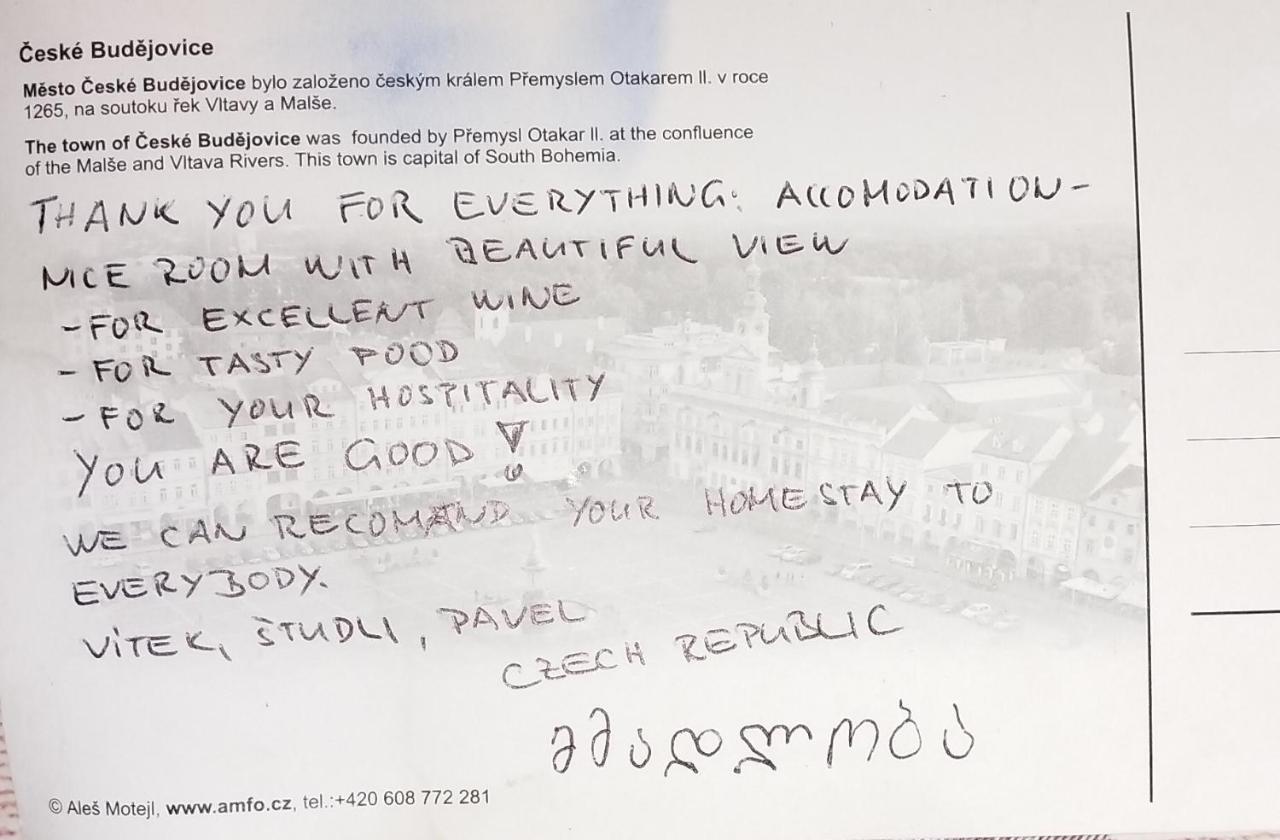 České Budějovice
Město České Budějovice bylo založeno českým králem Přemyslem Otakarem II. v roce
1265, na soutoku řek Vltavy a Malše.
The town of České Budějovice was founded by Přemysl Otakar II. at the confluence
of the Malše and Vltava Rivers. This town is capital of South Bohemia.
THANK YOU FOR EVERYTHING: ACCOMODATION-
NICE ROOM WITH BEAUTIFUL VIEW
- FOR EXCELLENT WINE
- FOR TASTY FOOD
- FOR YOUR HOSPITALITY
YOU ARE GOOD!
WE CAN RECOMAND YOUR HOMESTAY TO
EVERYBODY.
VÍTEK, ŠTUDLI, PAVEL
CZECH REPUBLIC
გმადლობა
© Aleš Motejl, www.amfo.cz, tel.:+420 608 772 281